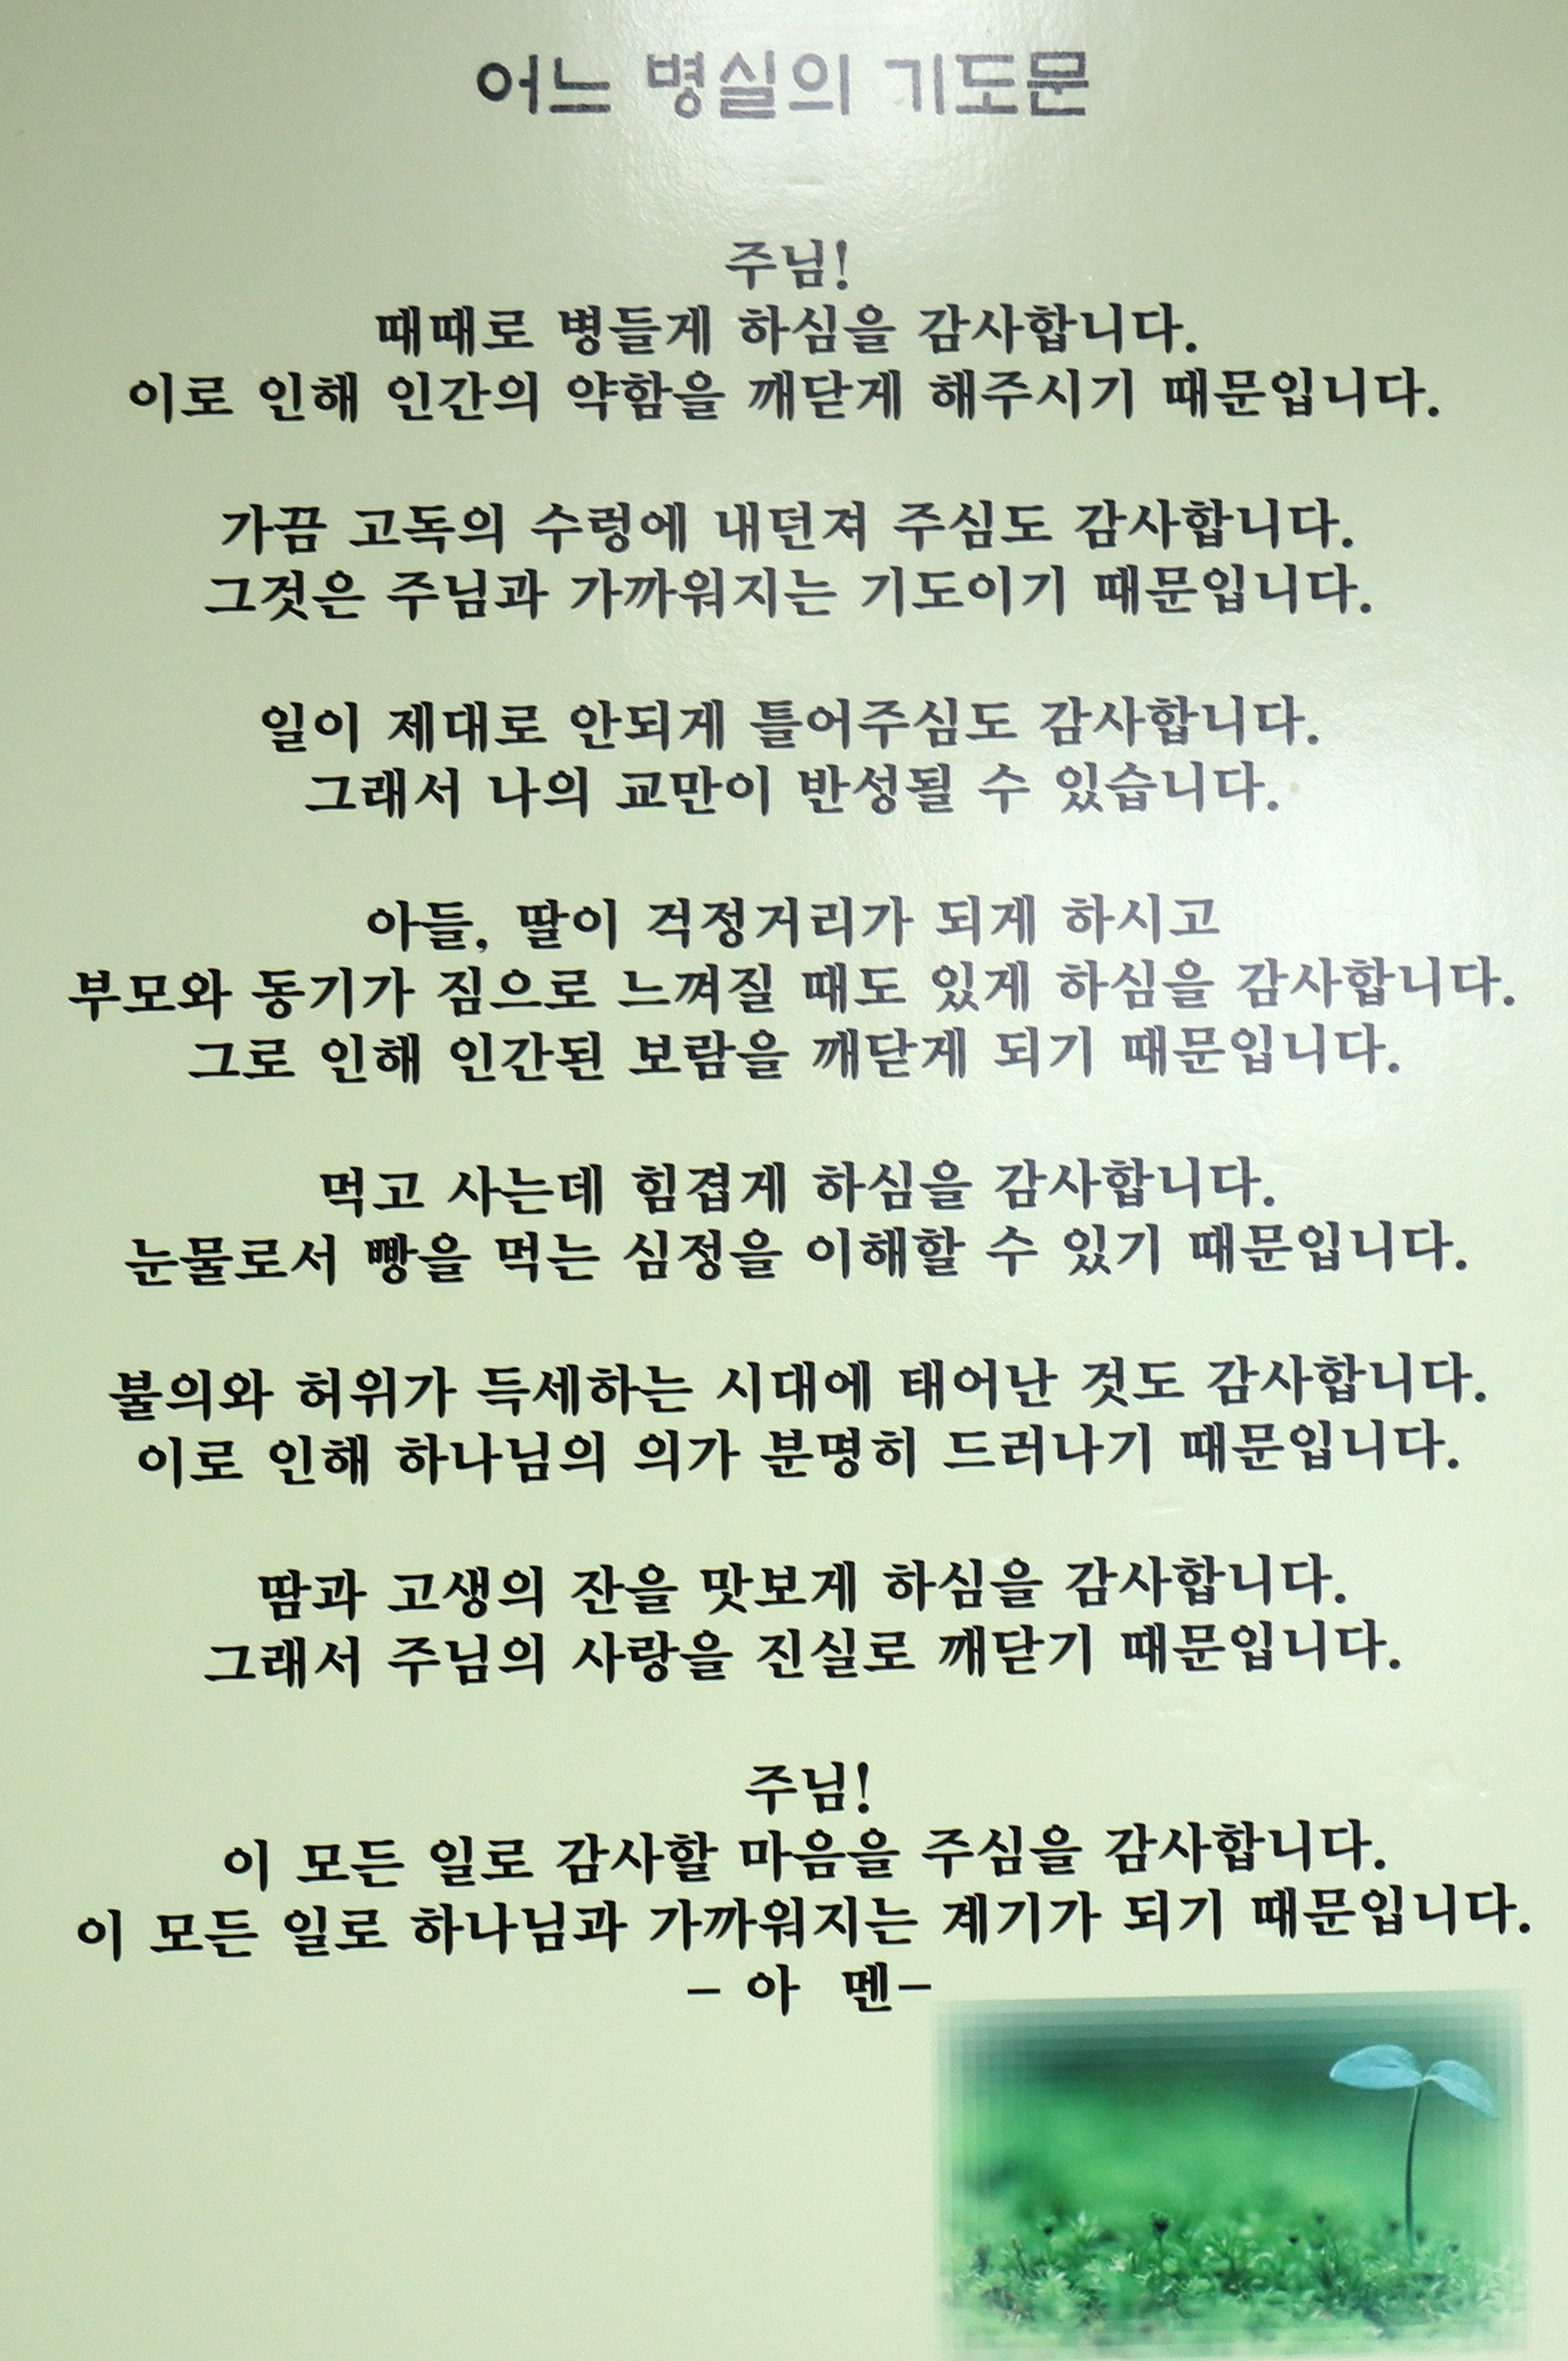 어느 병실의 기도문
주님!
때때로 병들게 하심을 감사합니다.
이로 인해 인간의 약함을 깨닫게 해주시기 때문입니다.
가끔 고독의 수렁에 내던져 주심도 감사합니다.
그것은 주님과 가까워지는 기도이기 때문입니다.
일이 제대로 안되게 틀어주심도 감사합니다.
그래서 나의 교만이 반성될 수 있습니다.
아들, 딸이 걱정거리가 되게 하시고
부모와 동기가 짐으로 느껴질 때도 있게 하심을 감사합니다.
그로 인해 인간된 보람을 깨닫게 되기 때문입니다.
먹고 사는데 힘겹게 하심을 감사합니다.
눈물로서 빵을 먹는 심정을 이해할 수 있기 때문입니다.
불의와 허위가 득세하는 시대에 태어난 것도 감사합니다.
이로 인해 하나님의 의가 분명히 드러나기 때문입니다.
땀과 고생의 잔을 맛보게 하심을 감사합니다.
그래서 주님의 사랑을 진실로 깨닫기 때문입니다.
주님!
이 모든 일로 감사할 마음을 주심을 감사합니다.
이 모든 일로 하나님과 가까워지는 계기가 되기 때문입니다.
- 아 멘-